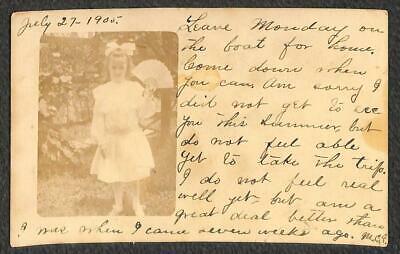 July 27- 1905.
Leave Monday on
the boat for home.
Come down when
you can. Am sorry I
did not get to see
you this summer, but
do not feel able
yet to take the trip.
I do not feel real
well yet, but am a
great deal better than
I was when I came seven weeks ago. M.C.